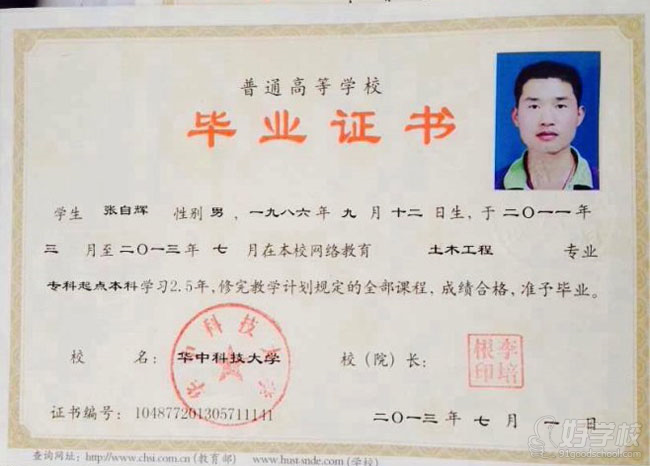 普通高等学校
毕业证书
学生 张自辉 性别 男，一九八六年 九 月 十二 日生，于二〇一一年
三 月至二〇一三年 七 月在本校网络教育 土木工程 专业
专科起点本科学习2.5年，修完教学计划规定的全部课程，成绩合格，准予毕业。
校 名：华中科技大学 校（院）长：
华中科技大学
李培根印
证书编号：104877201305711141
二〇一三 年 七 月 一 日
查询网址：http://www.chsi.com.cn(教育部) www.hust-snde.com(学校)
好学校